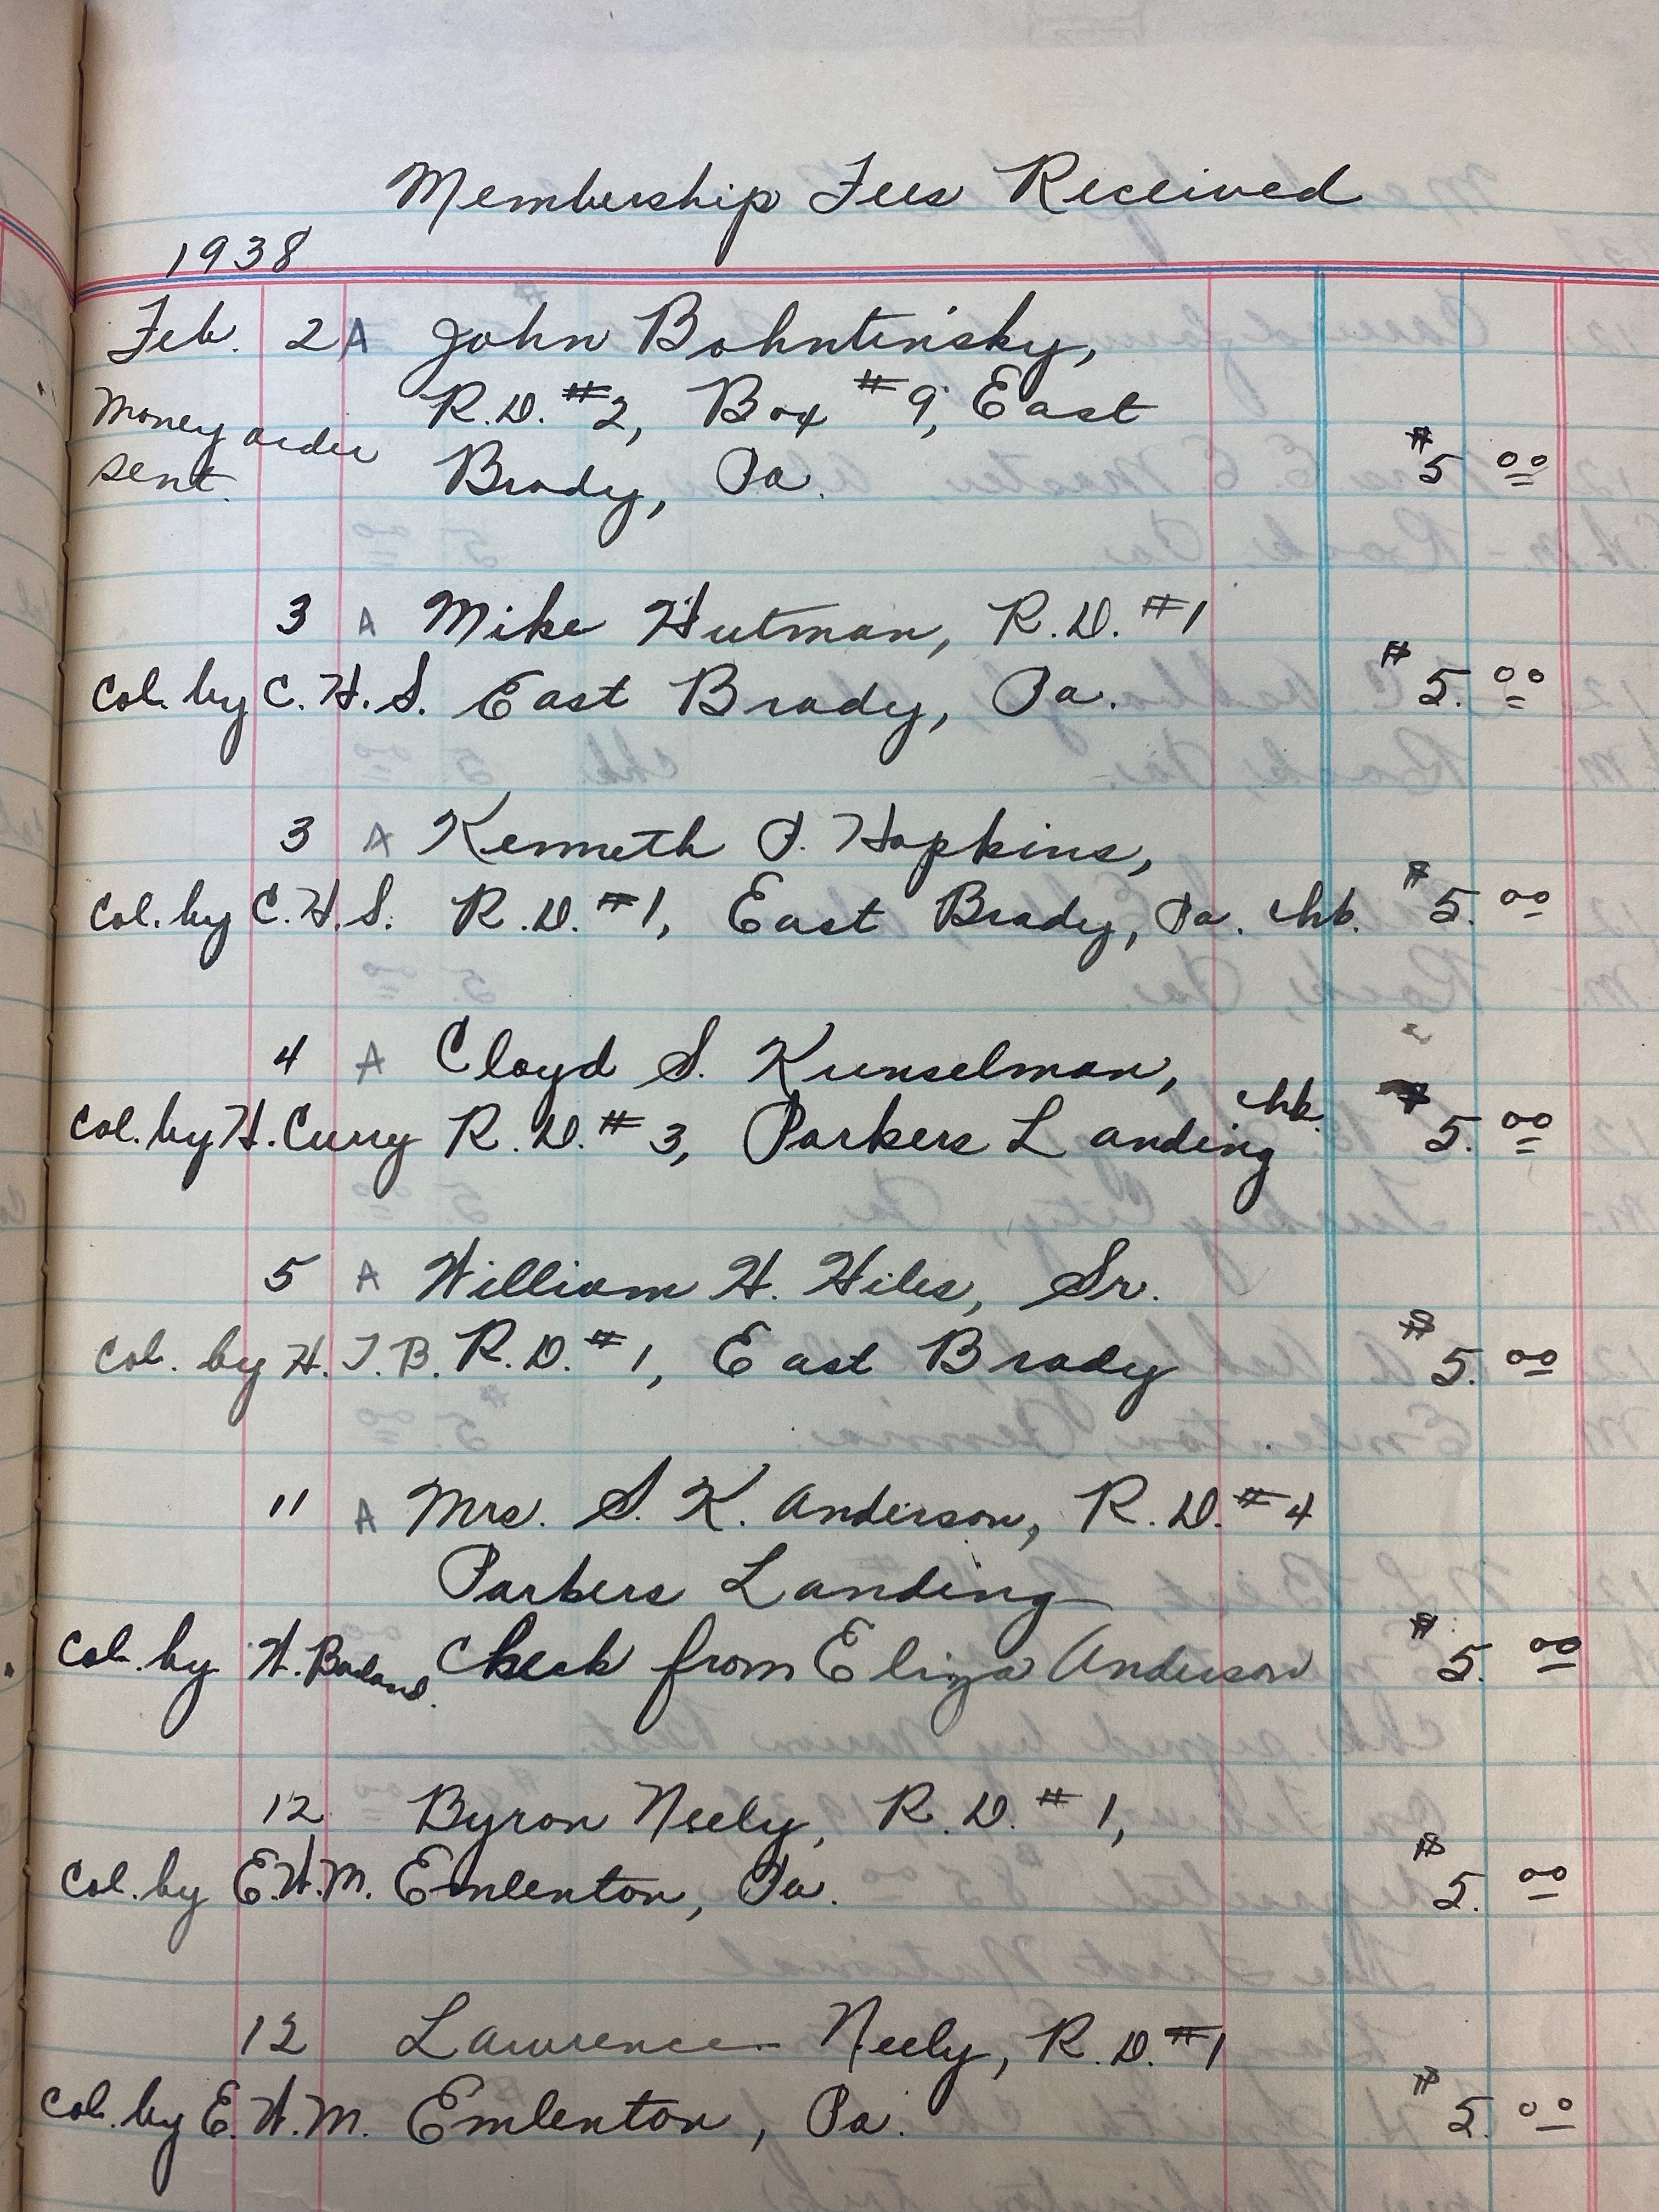 Membership Fees Received
1938
Feb. 2 A John Bohntinsky,
R.D. #2, Box #9, East
Money order
sent. Brady, Pa. $5 00
3 A Mike Hutman, R.D. #1
Col. by C.H.S. East Brady, Pa. $5. 00
3 A Kenneth P. Hopkins,
Col. by C.H.S. R.D. #1, East Brady, Pa. chk. $5. 00
4 A Cloyd S. Kunselman,
Col. by H. Curry R.D. #3, Parkers Landing chk. $5. 00
5 A William H. Hiles, Sr.
Col. by H.T.B. R.D. #1, East Brady $5. 00
11 A Mrs. S. K. Anderson, R.D. #4
Parkers Landing
Col. by H. Check from Eliza Anderson $5. 00
12 Byron Neely, R.D. #1,
Col. by E.H.M. Emlenton, Pa. $5. 00
12 Lawrence Neely, R.D. #1
Col. by E.H.M. Emlenton, Pa. $5. 00